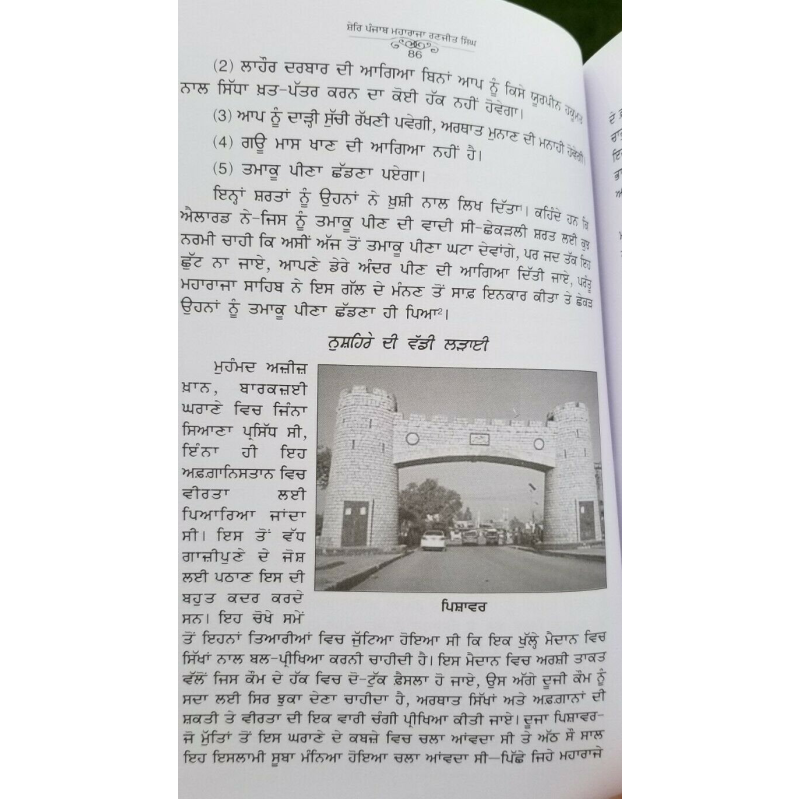 ਸ਼ੇਰਿ ਪੰਜਾਬ ਮਹਾਰਾਜਾ ਰਣਜੀਤ ਸਿੰਘ
86
(2) ਲਾਹੌਰ ਦਰਬਾਰ ਦੀ ਆਗਿਆ ਬਿਨਾਂ ਆਪ ਨੂੰ ਕਿਸੇ ਯੂਰਪੀਨ ਹਕੂਮਤ
ਨਾਲ ਸਿੱਧਾ ਖ਼ਤ-ਪੱਤਰ ਕਰਨ ਦਾ ਕੋਈ ਹੱਕ ਨਹੀਂ ਹੋਵੇਗਾ।
(3) ਆਪ ਨੂੰ ਦਾੜ੍ਹੀ ਸੁੱਚੀ ਰੱਖਣੀ ਪਵੇਗੀ, ਅਰਥਾਤ ਮੁਨਾਣ ਦੀ ਮਨਾਹੀ ਹੋਵੇਗੀ।
(4) ਗਊ ਮਾਸ ਖਾਣ ਦੀ ਆਗਿਆ ਨਹੀਂ ਹੈ।
(5) ਤਮਾਕੂ ਪੀਣਾ ਛੱਡਣਾ ਪਏਗਾ।
ਇਨ੍ਹਾਂ ਸ਼ਰਤਾਂ ਨੂੰ ਉਹਨਾਂ ਨੇ ਖ਼ੁਸ਼ੀ ਨਾਲ ਲਿਖ ਦਿੱਤਾ¹। ਕਹਿੰਦੇ ਹਨ ਕਿ
ਐਲਾਰਡ ਨੇ-ਜਿਸ ਨੂੰ ਤਮਾਕੂ ਪੀਣ ਦੀ ਵਾਦੀ ਸੀ-ਛੇਕੜਲੀ ਸ਼ਰਤ ਲਈ ਕੁਝ
ਨਰਮੀ ਚਾਹੀ ਕਿ ਅਸੀਂ ਅੱਜ ਤੋਂ ਤਮਾਕੂ ਪੀਣਾ ਘਟਾ ਦੇਵਾਂਗੇ, ਪਰ ਜਦ ਤੱਕ ਇਹ
ਛੁੱਟ ਨਾ ਜਾਏ, ਆਪਣੇ ਡੇਰੇ ਅੰਦਰ ਪੀਣ ਦੀ ਆਗਿਆ ਦਿੱਤੀ ਜਾਏ, ਪਰੰਤੂ
ਮਹਾਰਾਜਾ ਸਾਹਿਬ ਨੇ ਇਸ ਗੱਲ ਦੇ ਮੰਨਣ ਤੋਂ ਸਾਫ਼ ਇਨਕਾਰ ਕੀਤਾ ਤੇ ਛੇਕੜ
ਉਹਨਾਂ ਨੂੰ ਤਮਾਕੂ ਪੀਣਾ ਛੱਡਣਾ ਹੀ ਪਿਆ²।
ਨੁਸ਼ਹਿਰੇ ਦੀ ਵੱਡੀ ਲੜਾਈ
ਮੁਹੰਮਦ ਅਜ਼ੀਜ਼
ਖ਼ਾਨ, ਬਾਰਕਜ਼ਈ
ਘਰਾਣੇ ਵਿਚ ਜਿੰਨਾ
ਸਿਆਣਾ ਪ੍ਰਸਿੱਧ ਸੀ,
ਇੰਨਾ ਹੀ ਇਹ
ਅਫ਼ਗਾਨਿਸਤਾਨ ਵਿਚ
ਵੀਰਤਾ ਲਈ
ਪਿਆਰਿਆ ਜਾਂਦਾ
ਸੀ। ਇਸ ਤੋਂ ਵੱਧ
ਗਾਜ਼ੀਪੁਣੇ ਦੇ ਜੋਸ਼
ਲਈ ਪਠਾਣ ਇਸ ਦੀ
ਬਹੁਤ ਕਦਰ ਕਰਦੇ
ਸਨ। ਇਹ ਚੋਖੇ ਸਮੇਂ
ਪਿਸ਼ਾਵਰ
ਤੋਂ ਇਹਨਾਂ ਤਿਆਰੀਆਂ ਵਿਚ ਜੁੱਟਿਆ ਹੋਇਆ ਸੀ ਕਿ ਇਕ ਖੁੱਲ੍ਹੇ ਮੈਦਾਨ ਵਿਚ
ਸਿੱਖਾਂ ਨਾਲ ਬਲ-ਪ੍ਰੀਖਿਆ ਕਰਨੀ ਚਾਹੀਦੀ ਹੈ। ਇਸ ਮੈਦਾਨ ਵਿਚ ਅਰਸ਼ੀ ਤਾਕਤ
ਵੱਲੋਂ ਜਿਸ ਕੌਮ ਦੇ ਹੱਕ ਵਿਚ ਦੋ-ਟੁੱਕ ਫ਼ੈਸਲਾ ਹੋ ਜਾਏ, ਉਸ ਅੱਗੇ ਦੂਜੀ ਕੌਮ ਨੂੰ
ਸਦਾ ਲਈ ਸਿਰ ਝੁਕਾ ਦੇਣਾ ਚਾਹੀਦਾ ਹੈ, ਅਰਥਾਤ ਸਿੱਖਾਂ ਅਤੇ ਅਫ਼ਗਾਨਾਂ ਦੀ
ਸ਼ਕਤੀ ਤੇ ਵੀਰਤਾ ਦੀ ਇਕ ਵਾਰੀ ਚੰਗੀ ਪ੍ਰੀਖਿਆ ਕੀਤੀ ਜਾਏ। ਦੂਜਾ ਪਿਸ਼ਾਵਰ-
ਜੋ ਮੁੱਤਿਂ ਤੋਂ ਇਸ ਘਰਾਣੇ ਦੇ ਕਬਜ਼ੇ ਵਿਚ ਚਲਾ ਆਂਵਦਾ ਸੀ ਤੇ ਅੱਠ ਸੌ ਸਾਲ
ਇਹ ਇਸਲਾਮੀ ਸੂਬਾ ਮੰਨਿਆ ਹੋਇਆ ਚਲਾ ਆਂਵਦਾ ਸੀ—ਪਿੱਛੇ ਜਿਹੇ ਮਹਾਰਾਜੇ